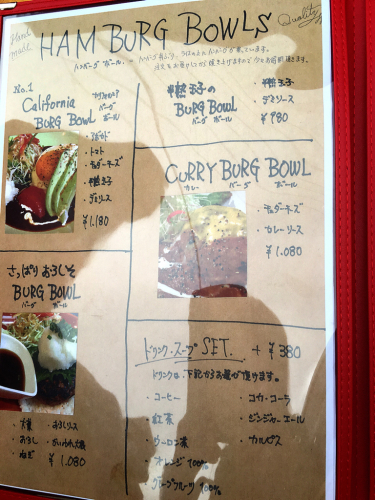 Hand Made
HAM BURG BOWLS
Quality
ハンバーグ ボール
No.1
California
BURG BOWL
カリフォルニア
バーグ
ボール
・アボカド
・トマト
・チェダーチーズ
・半熟玉子
・デミソース
¥1,180
半熟玉子の
BURG BOWL
バーグ ボール
・半熟玉子
・デミソース
¥980
CURRY BURG BOWL
カレー バーグ ボール
・チェダーチーズ
・カレーソース
¥1,080
さっぱり おろしそ
BURG BOWL
バーグ ボール
・大葉
・おろし
・ねぎ
・おろしソース
・かいわれ大根
¥1,080
ドリンク・スープ SET. + ¥380
ドリンクは、下記からお選び頂けます。
・コーヒー
・紅茶
・ウーロン茶
・オレンジ 100%
・グレープフルーツ 100%
・コカ・コーラ
・ジンジャーエール
・カルピス